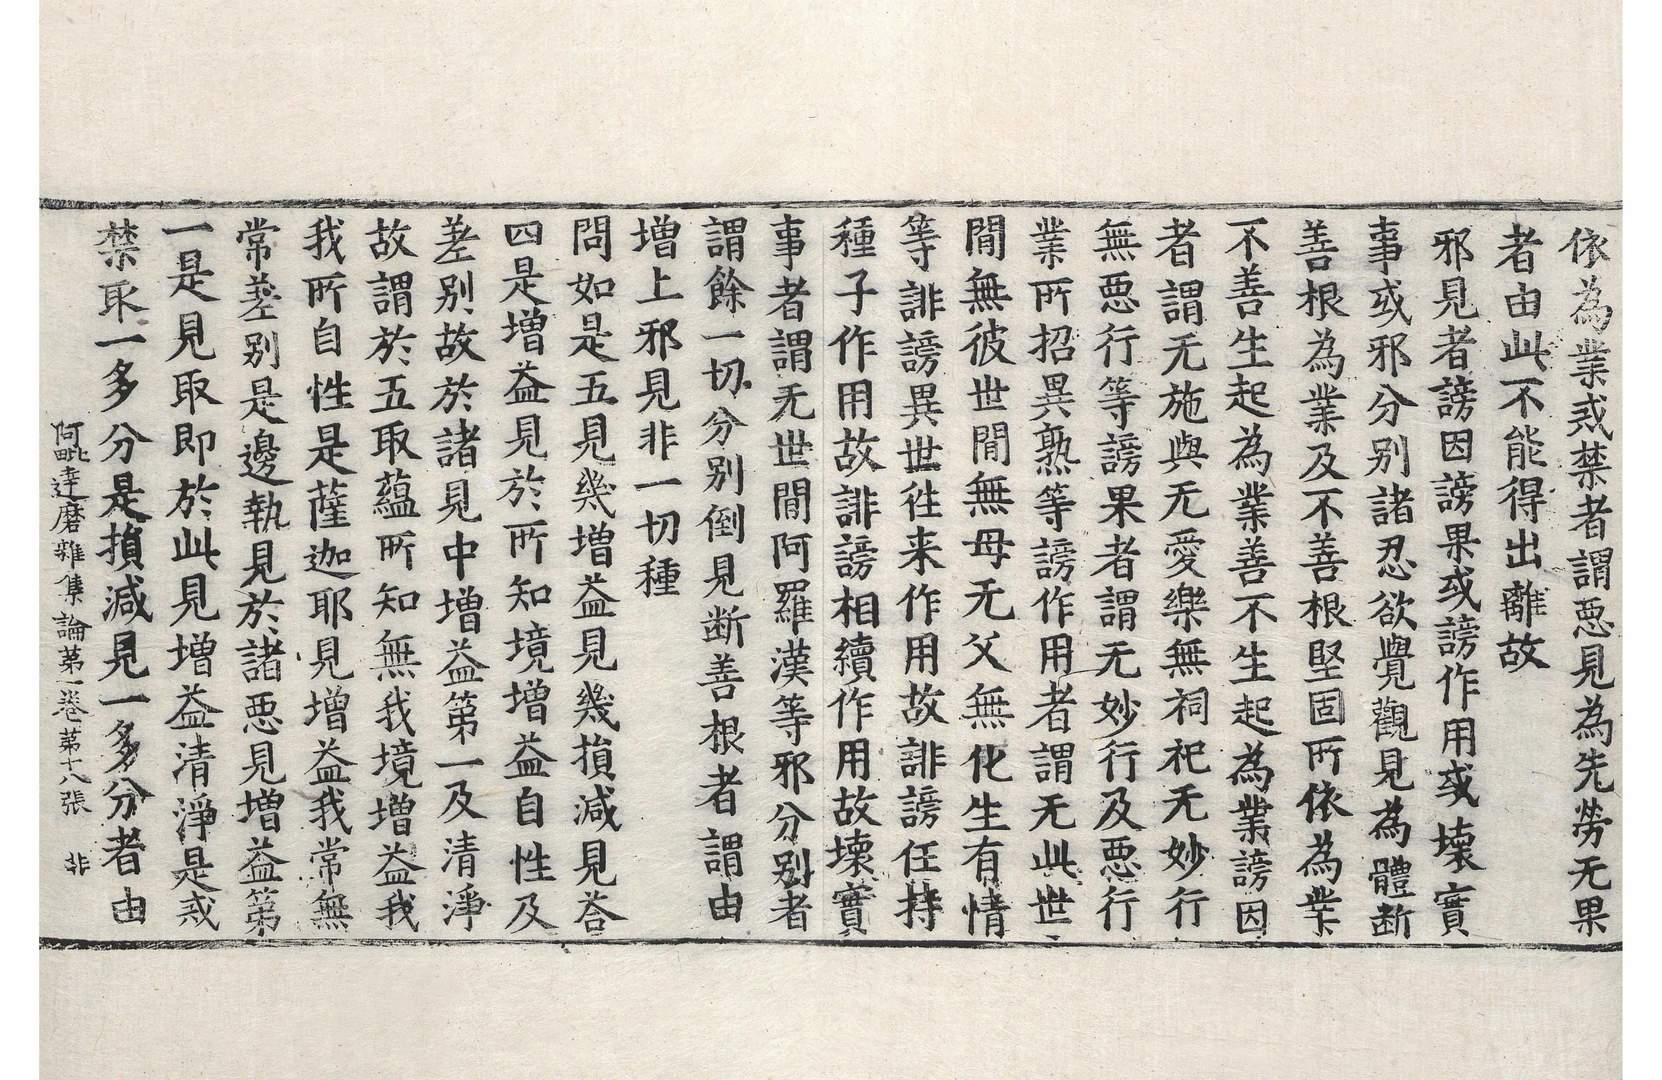 依為業戒禁者謂惡見為先勞无果
者由此不能得出離故
邪見者謗因謗果或謗作用或壞實
事或邪分別諸忍欲覺觀見為體斷
善根為業及不善根堅固所依為業
不善生起為業善不生起為業謗因
者謂无施與无愛樂無祠祀无妙行
無惡行等謗果者謂无妙行及惡行
業所招異熟等謗作用者謂无此世
間無彼世間無母无父無化生有情
等誹謗異世徃来作用故誹謗任持
種子作用故誹謗相續作用故壞實
事者謂无世間阿羅漢等邪分別者
謂餘一切分别倒見断善根者謂由
增上邪見非一切種
問如是五見幾增益見幾損減見荅
四是增益見於所知境增益自性及
差别故於諸見中增益第一及清淨
故謂於五取蘊所知無我境增益我
我所自性是薩迦耶見增益我常無
常差别是邊執見於諸惡見增益第
一是見取即於此見增益清淨是戒
禁取一多分是損減見一多分者由
阿毗達磨雜集論第一卷 第十八張 非